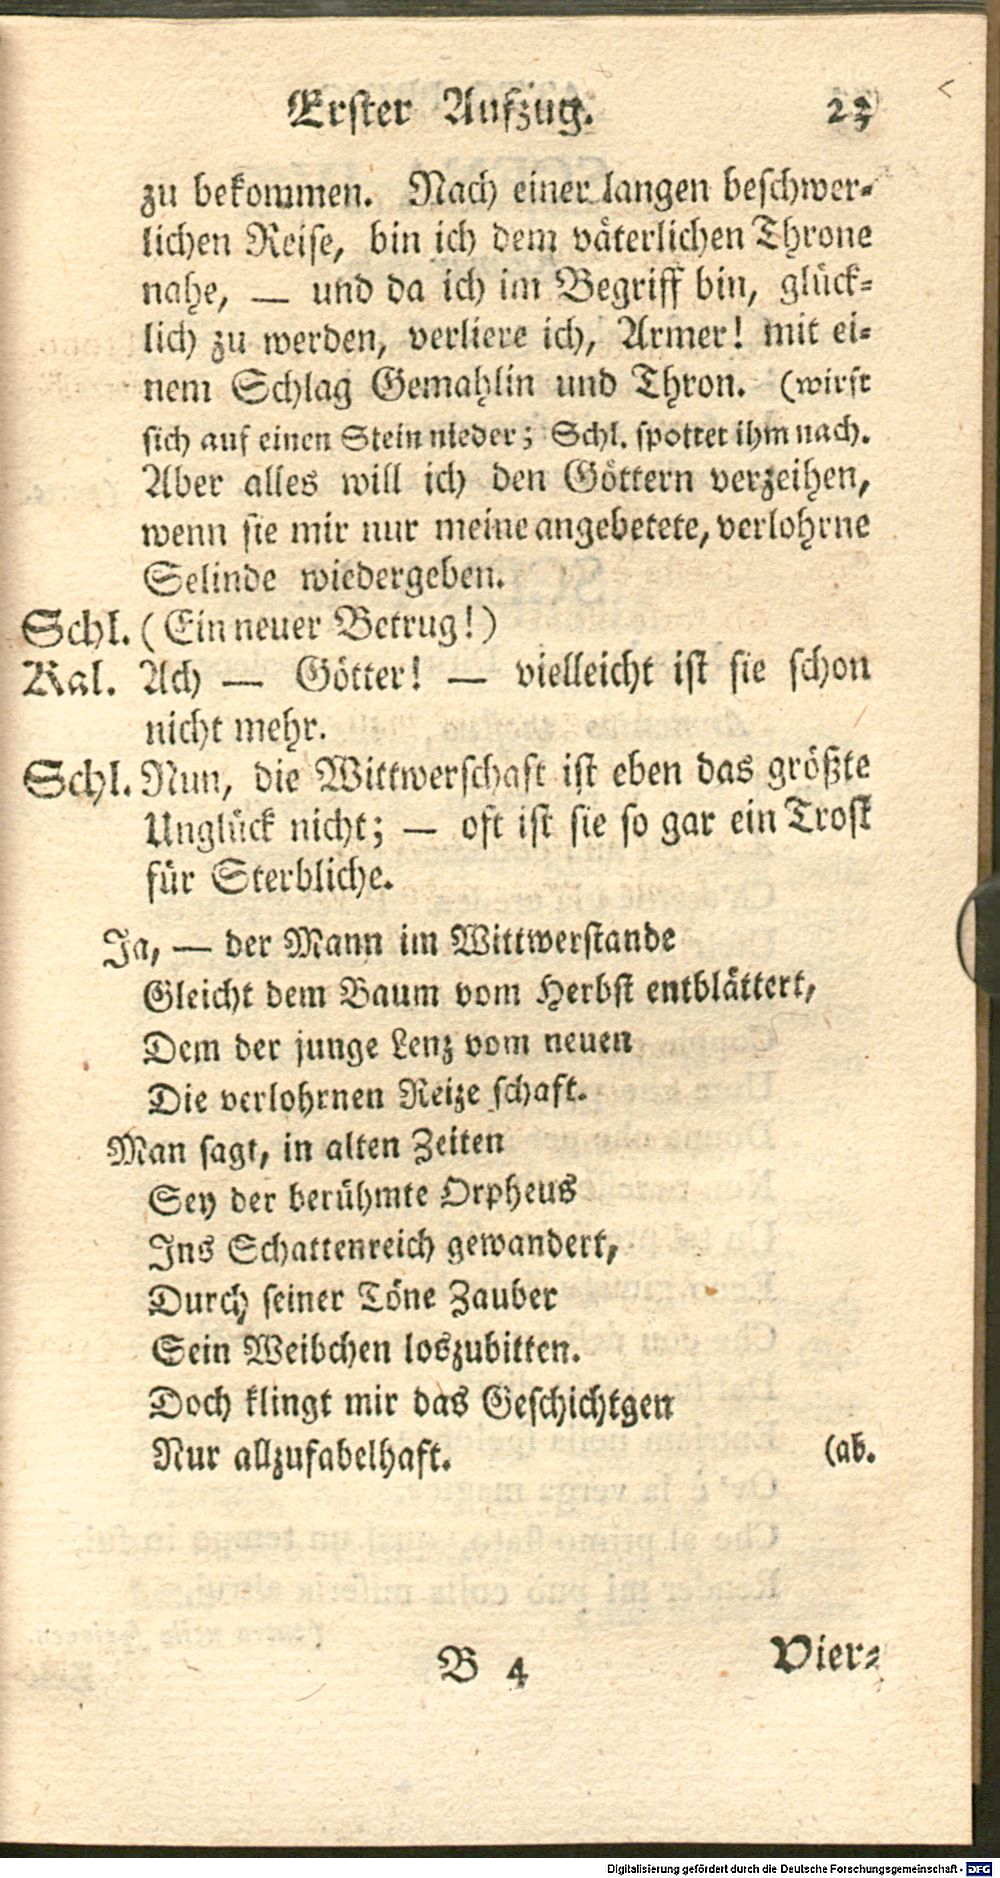 Erster Aufzug. 23
zu bekommen. Nach einer langen beschwer-
lichen Reise, bin ich dem väterlichen Throne
nahe, — und da ich im Begriff bin, glück-
lich zu werden, verliere ich, Armer! mit ei-
nem Schlag Gemahlin und Thron. (wirft
sich auf einen Stein nieder; Schl. spottet ihm nach.
Aber alles will ich den Göttern verzeihen,
wenn sie mir nur meine angebetete, verlohrne
Selinde wiedergeben.
Schl. (Ein neuer Betrug!)
Kal. Ach — Götter! — vielleicht ist sie schon
nicht mehr.
Schl. Nun, die Wittwerschaft ist eben das größte
Unglück nicht; — oft ist sie so gar ein Trost
für Sterbliche.
Ja, — der Mann im Wittwerstande
Gleicht dem Baum vom Herbst entblättert,
Dem der junge Lenz vom neuen
Die verlohrnen Reize schaft.
Man sagt, in alten Zeiten
Sey der berühmte Orpheus
Ins Schattenreich gewandert,
Durch seiner Töne Zauber
Sein Weibchen loszubitten.
Doch klingt mir das Geschichtgen
Nur allzufabelhaft. (ab.
B 4 Vier-
Digitalisierung gefördert durch die Deutsche Forschungsgemeinschaft - DFG